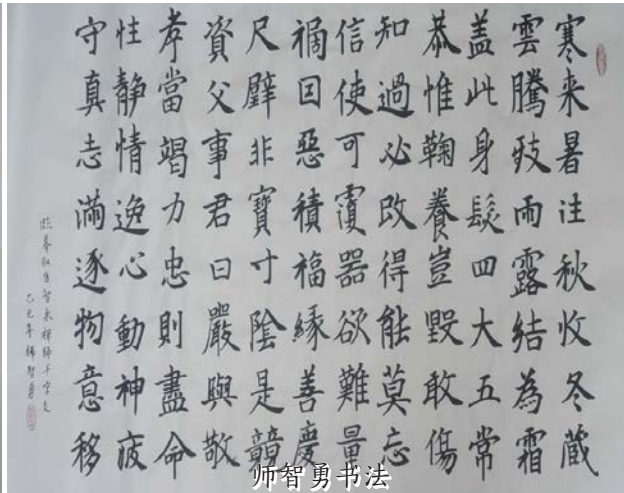 寒来暑往秋收冬藏
雲騰致雨露結為霜
盖此身髮四大五常
恭惟鞠養豈毀敢傷
知過必改得能莫忘
信使可覆器欲難量
禍因惡積福緣善慶
尺璧非寶寸陰是競
資父事君曰嚴與敬
孝當竭力忠則盡命
性靜情逸心動神疲
守真志滿逐物意移
臨摹取自智永禪師千字文
乙巳年師智勇
师智勇书法